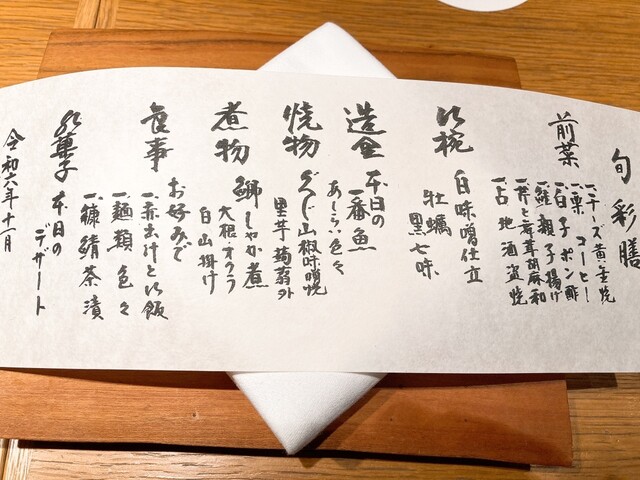 旬彩膳
前菜
一、チーズ黄金焼
一、栗コーヒー
一、白子ポン酢
一、鮭親子揚げ
一、芹と舞茸胡麻和
一、占地酒盗焼
御椀
白味噌仕立
牡蠣
黒七味
造里
本日の
一番魚
あしらい色々
焼物
ぐじ山椒味噌焼
里芋蒟蒻外
煮物
鰤しゃか煮
大根・オクラ
白山掛け
食事
お好みで
一、赤出汁と御飯
一、麺類色々
一、糠鯖茶漬
水菓子
本日の
デザート
令和六年十一月